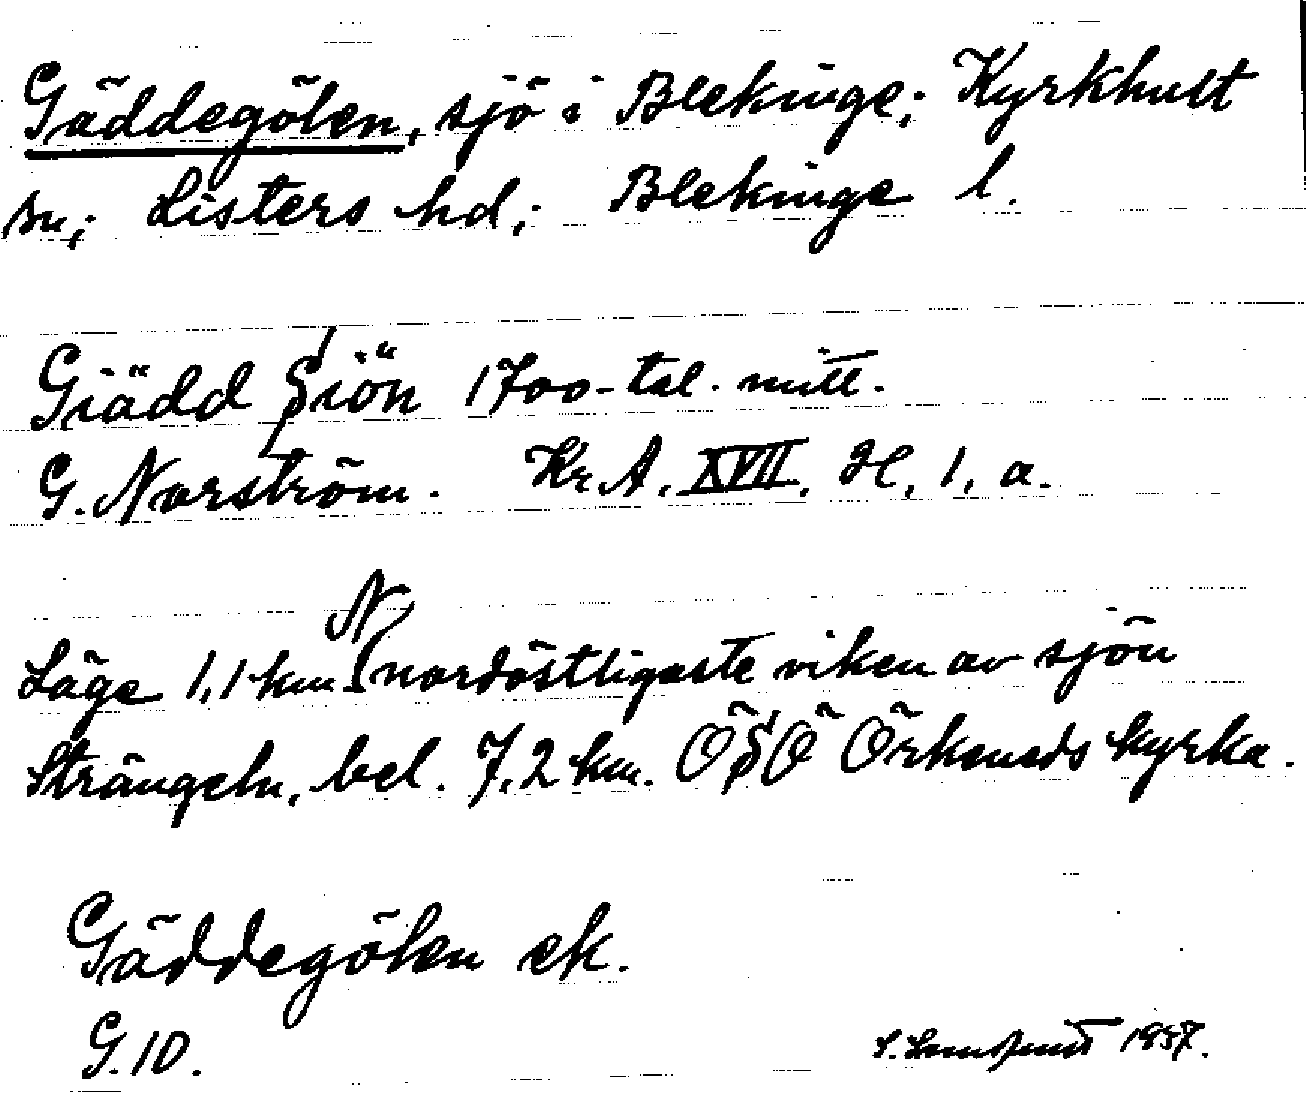 Gäddegölen, sjö i Blekinge; Kyrkhult
sn; Listers hd; Blekinge l.
Giädd Siön 1700-tal. mitt.
G. Norström. Kr. A. XVII, H, 1, a.
N
Läge 1,1 km nordöstligaste viken av sjön
Strängeln, bel. 7,2 km. ÖSÖ Örkeneds kyrka.
Gäddegölen ek.
G. 10.
1937.